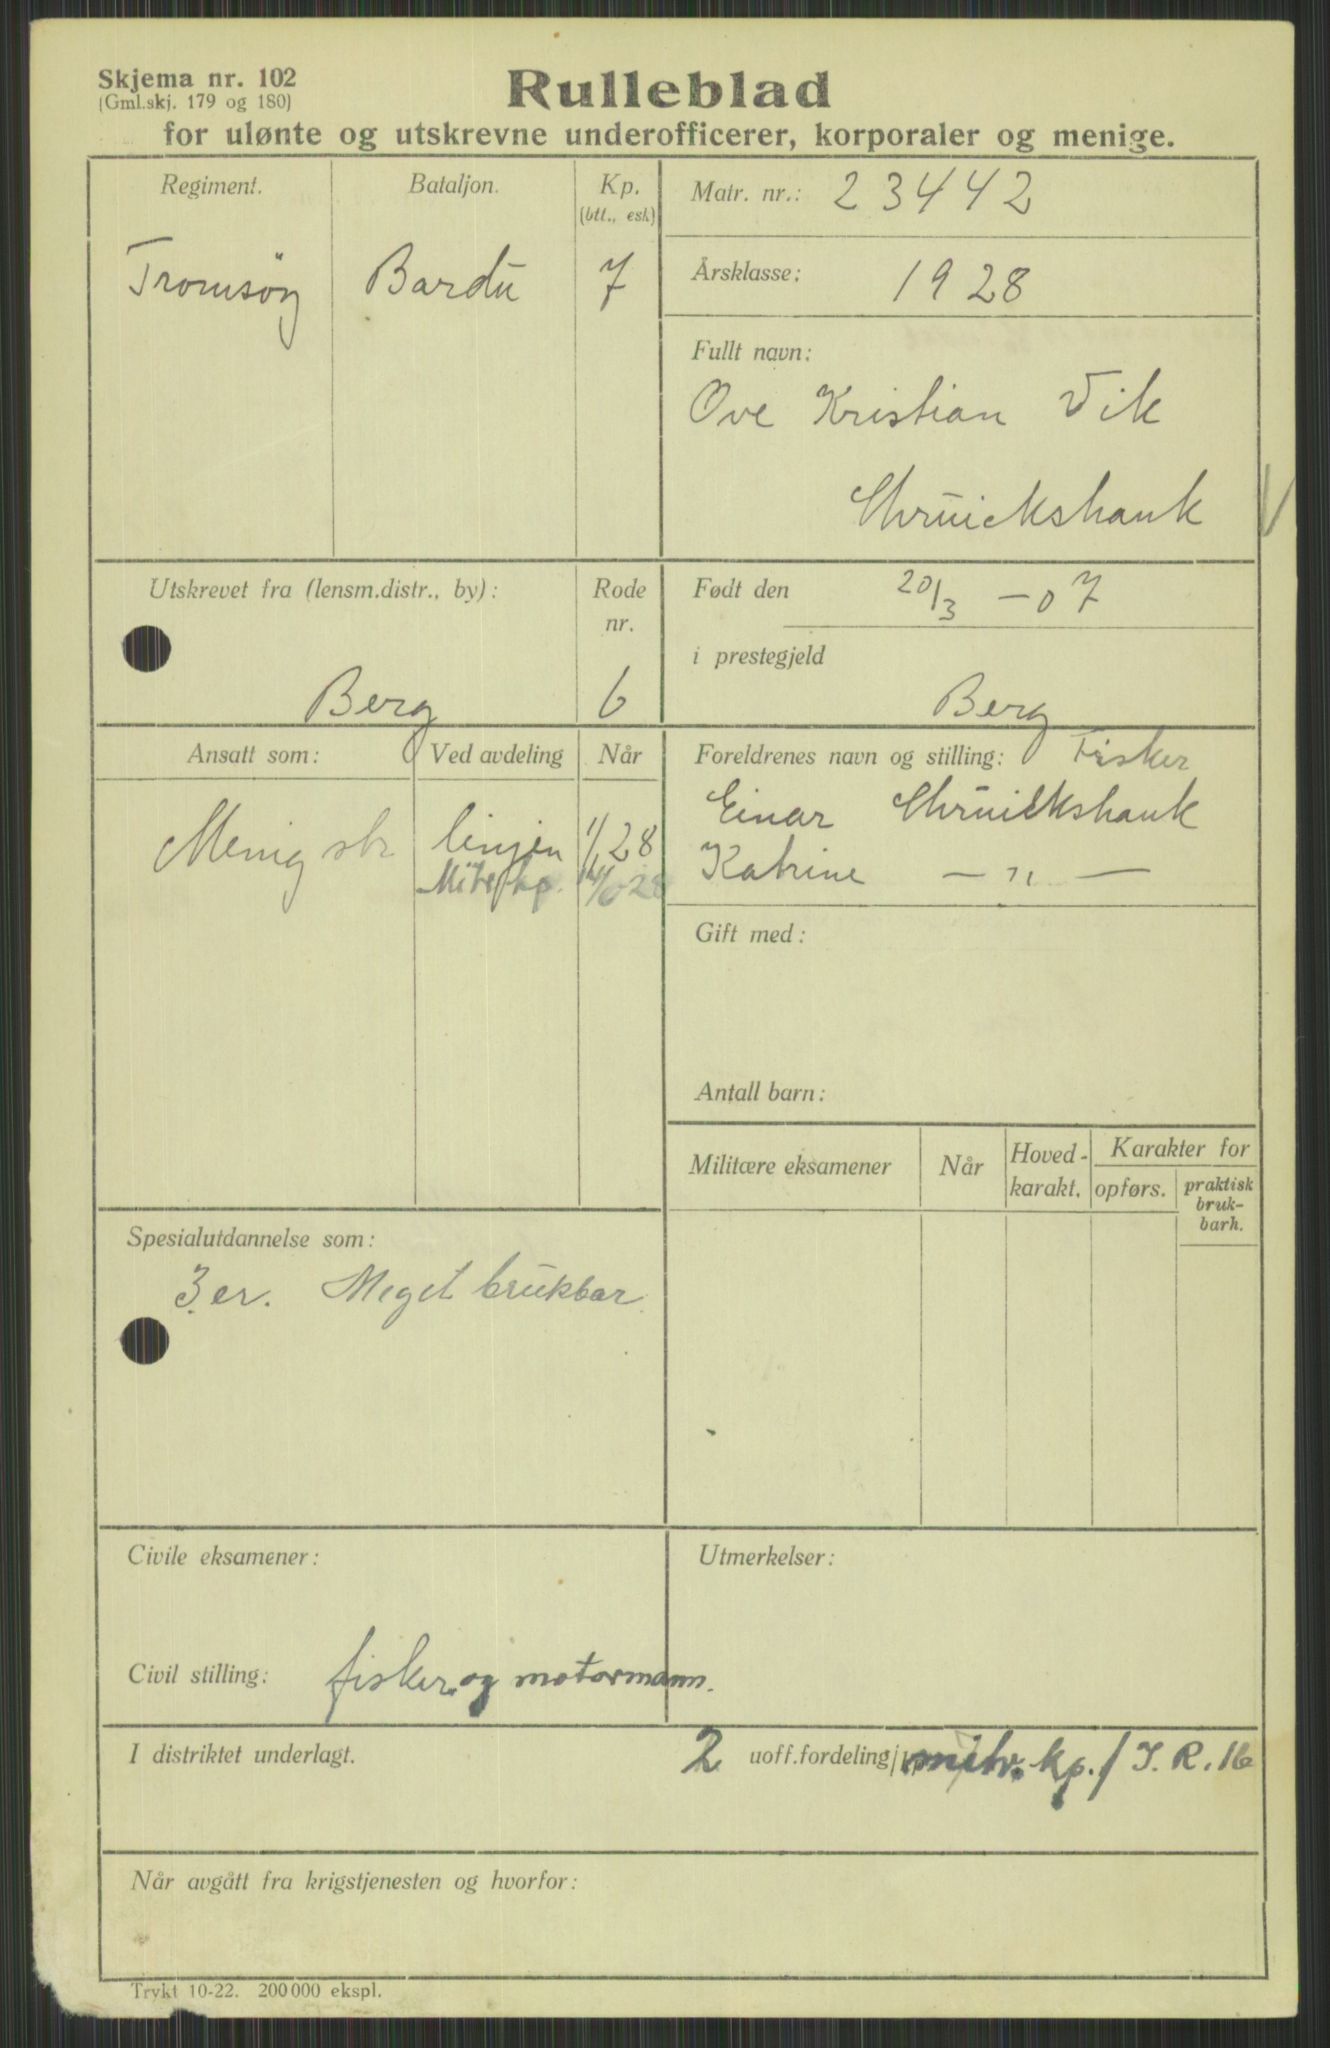 Skjema nr. 102
(Gml.skj. 179 og 180)
Rulleblad
for ulønte og utskrevne underofficerer, korporaler og menige.
Regiment.
Bataljon.
Kp.
(btl., esk)
Tromsøy
Bardu
7
Matr. nr.: 23442
Årsklasse: 1928
Fullt navn:
Ove Kristian Vik
Chruickshank
Utskrevet fra (lensm.distr., by):
Rode
nr.
Berg
6
Født den 20/3 - 07
i prestegjeld
Berg
Ansatt som:
Ved avdeling
Når
Menig str linjen 1/1 28
Mitr.kp.
Foreldrenes navn og stilling: Fisker
Einar Chruickshank
Katrine — " —
Gift med:
Antall barn:
Militære eksamener
Når
Hoved-
karakt.
Karakter for
opførs.
praktisk
bruk-
barh.
Spesialutdannelse som:
3er. Meget brukbar.
Civile eksamener:
Utmerkelser:
Civil stilling: fisker og motormann.
I distriktet underlagt.
2 uoff.fordeling mitr. kp. / I. R. 16
Når avgått fra krigstjenesten og hvorfor:
Trykt 10-22. 200 000 ekspl.